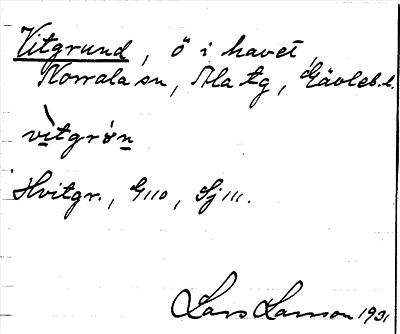 Vitgrund, ö i havet,
Norrala sn, Ala tg, Gävleb. l.
vìtgrøn
Hvitgr., G 110, Sj 111.
Lars Larsson 1931